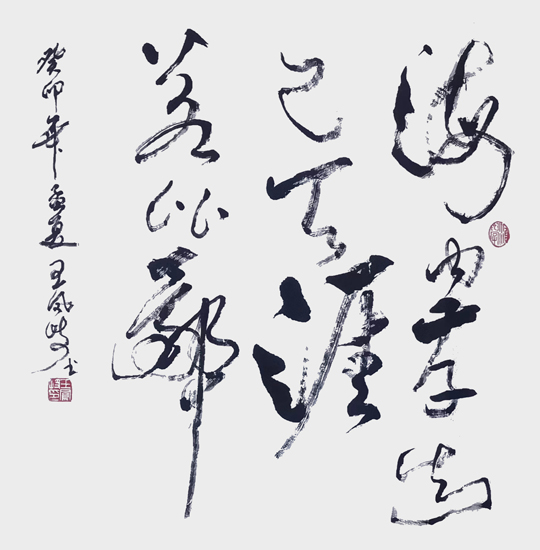 海内存知
己天涯
若比鄰
癸卯年孟夏王凤岐书